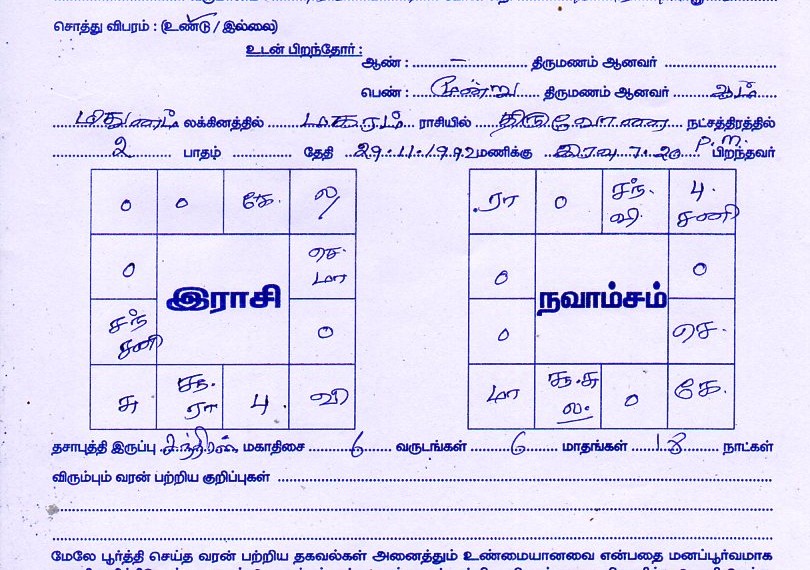 சொத்து விபரம் : (உண்டு / இல்லை)
உடன் பிறந்தோர் :
ஆண் : – திருமணம் ஆனவர்
பெண் : மூன்று திருமணம் ஆனவர்
மிதுனம் லக்கினத்தில் மகரம் ராசியில் திருவோணம் நட்சத்திரத்தில்
2 பாதம் தேதி 29.11.1992 மணிக்கு இரவு 7.20 P.M. பிறந்தவர்
0 0 கே. ல/ ரா 0 சந். வி. 4 சனி
0 செ. மா 0 0
இராசி நவாம்சம்
சந் சனி 0 0 செ.
சு ரா 4 வி மா சு ல. 0 கே.
தசாபுத்தி இருப்பு சந்திரன் மகாதிசை 6 வருடங்கள் 6 மாதங்கள் 18 நாட்கள்
விரும்பும் வரன் பற்றிய குறிப்புகள்
மேலே பூர்த்தி செய்த வரன் பற்றிய தகவல்கள் அனைத்தும் உண்மையானவை என்பதை மனப்பூர்வமாக